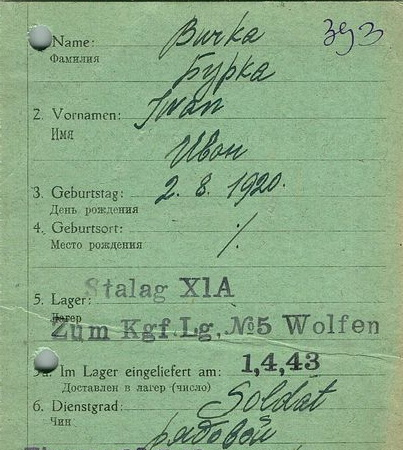 393
Name: Burka
Фамилия Бурка
2. Vornamen: Iwan
Имя Ивон
3. Geburtstag: 2. 8. 1920.
День рождения
4. Geburtsort: ./.
Место рождения
5. Lager: Stalag XIA
Лагер
Zum Kgf.Lg. №5 Wolfen
5a. Im Lager eingeliefert am: 1,4,43
Доставлен в лагер (число)
6. Dienstgrad: Soldat
Чин рядовой